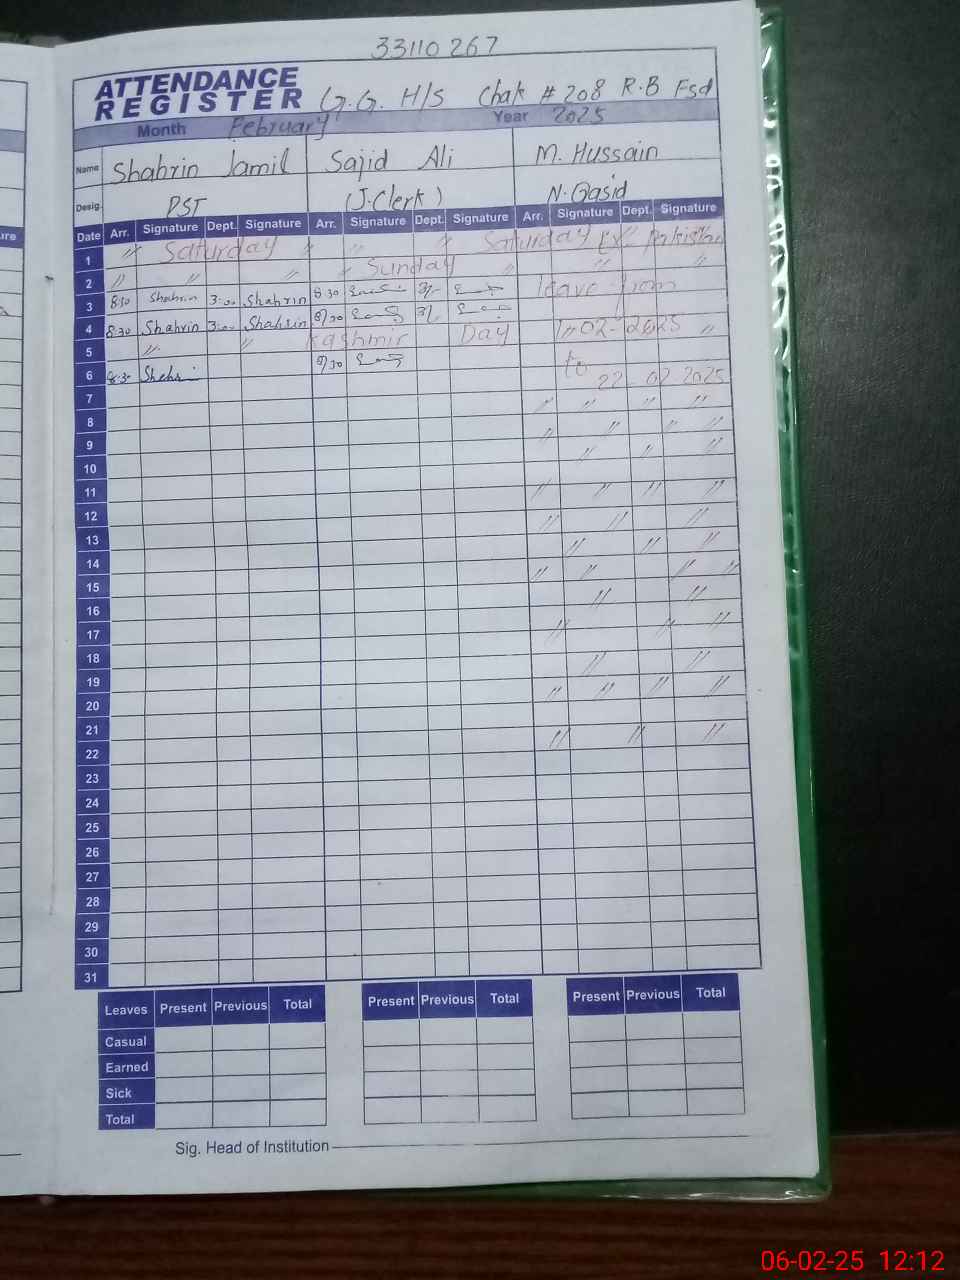 33110267
ATTENDANCE
REGISTER G.G. H/S Chak # 208 R.B Fsd
Month February Year 2025
Name Shahrin Jamil Sajid Ali M. Hussain
Desig. PST (J.Clerk) N.Qasid
Date Arr. Signature Dept. Signature Arr. Signature Dept. Signature Arr. Signature Dept. Signature
1 〃 Saturday 〃 〃 〃 Saturday Ex. Pakistan
2 〃 〃 〃 〃 Sunday 〃 〃 〃
3 8:30 Shahrin 3:00 Shahrin 8:30 3/- leave from
4 8:30 Shahrin 3:00 Shahrin 8/30 3/- 1-02-2025
5 〃 〃 Kashmir Day 〃 〃
6 8:30 8/30 to
22-02-2025
7 〃 〃 〃 〃
8 〃 〃 〃 〃
9 〃 〃 〃
10
11 〃 〃 〃 〃
12 〃 〃 〃
13 〃 〃 〃
14 〃 〃 〃 〃
15 〃 〃
16
17 〃 〃 〃
18 〃 〃
19 〃 〃 〃 〃
20
21 〃 〃 〃
22
23
24
25
26
27
28
29
30
31
Leaves Present Previous Total Present Previous Total Present Previous Total
Casual
Earned
Sick
Total
Sig. Head of Institution
06-02-25 12:12